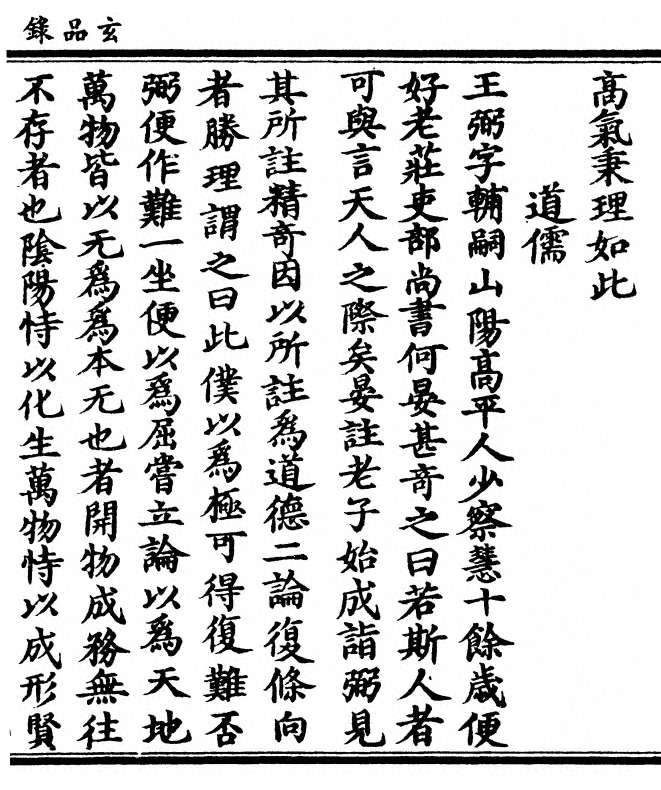 玄品錄
高氣秉理如此
道儒
王弼字輔嗣山陽高平人少察慧十餘歲便
好老莊吏部尚書何晏甚奇之曰若斯人者
可與言天人之際矣晏註老子始成詣弼見
其所註精奇因以所註為道德二論復條向
者勝理謂之曰此僕以為極可得復難否
弼便作難一坐便以為屈嘗立論以為天地
萬物皆以无為為本无也者開物成務無往
不存者也陰陽恃以化生萬物恃以成形賢